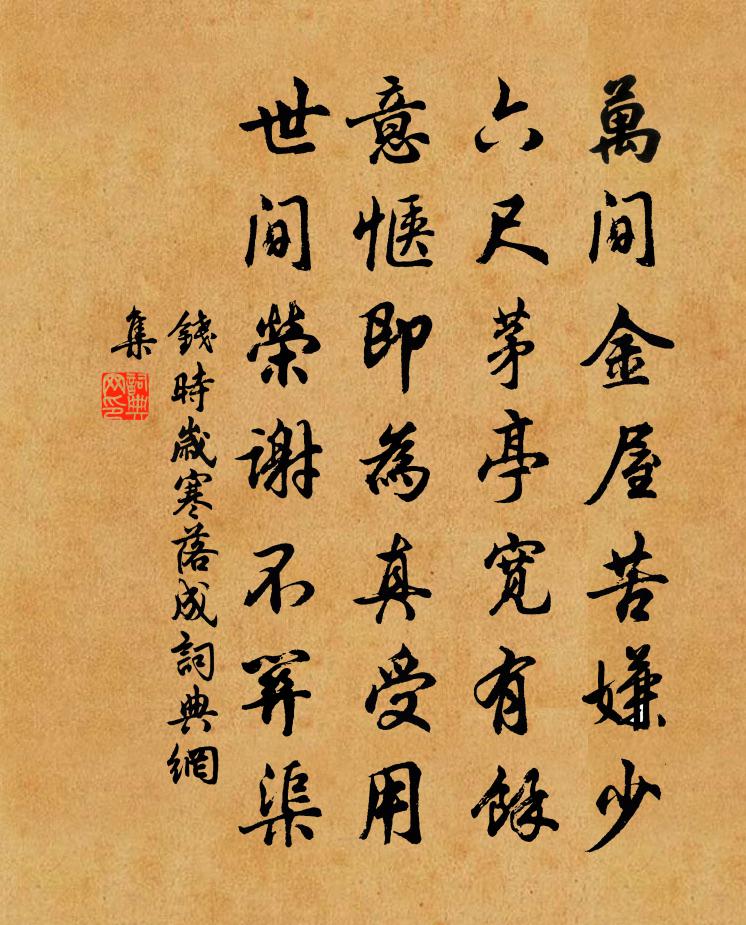 萬间金屋苦嫌少
六尺茅亭寛有餘
意愜即為真受用
世间榮謝不關渠
錢時歲寒落成詞典網
集
詞典網印